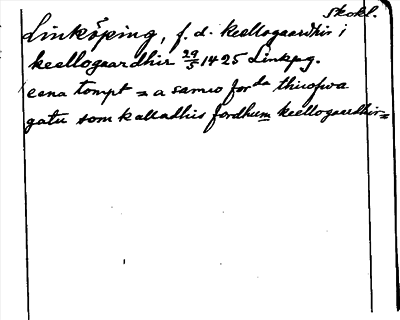 Skokl.
Linköping, f. d. keellogaardhir i
keellogaardhir 29/5 1425 Linkpg.
eena tompt = a samo for da thiwfwa
gatu som kalladhis fordhum keellogaardhir=